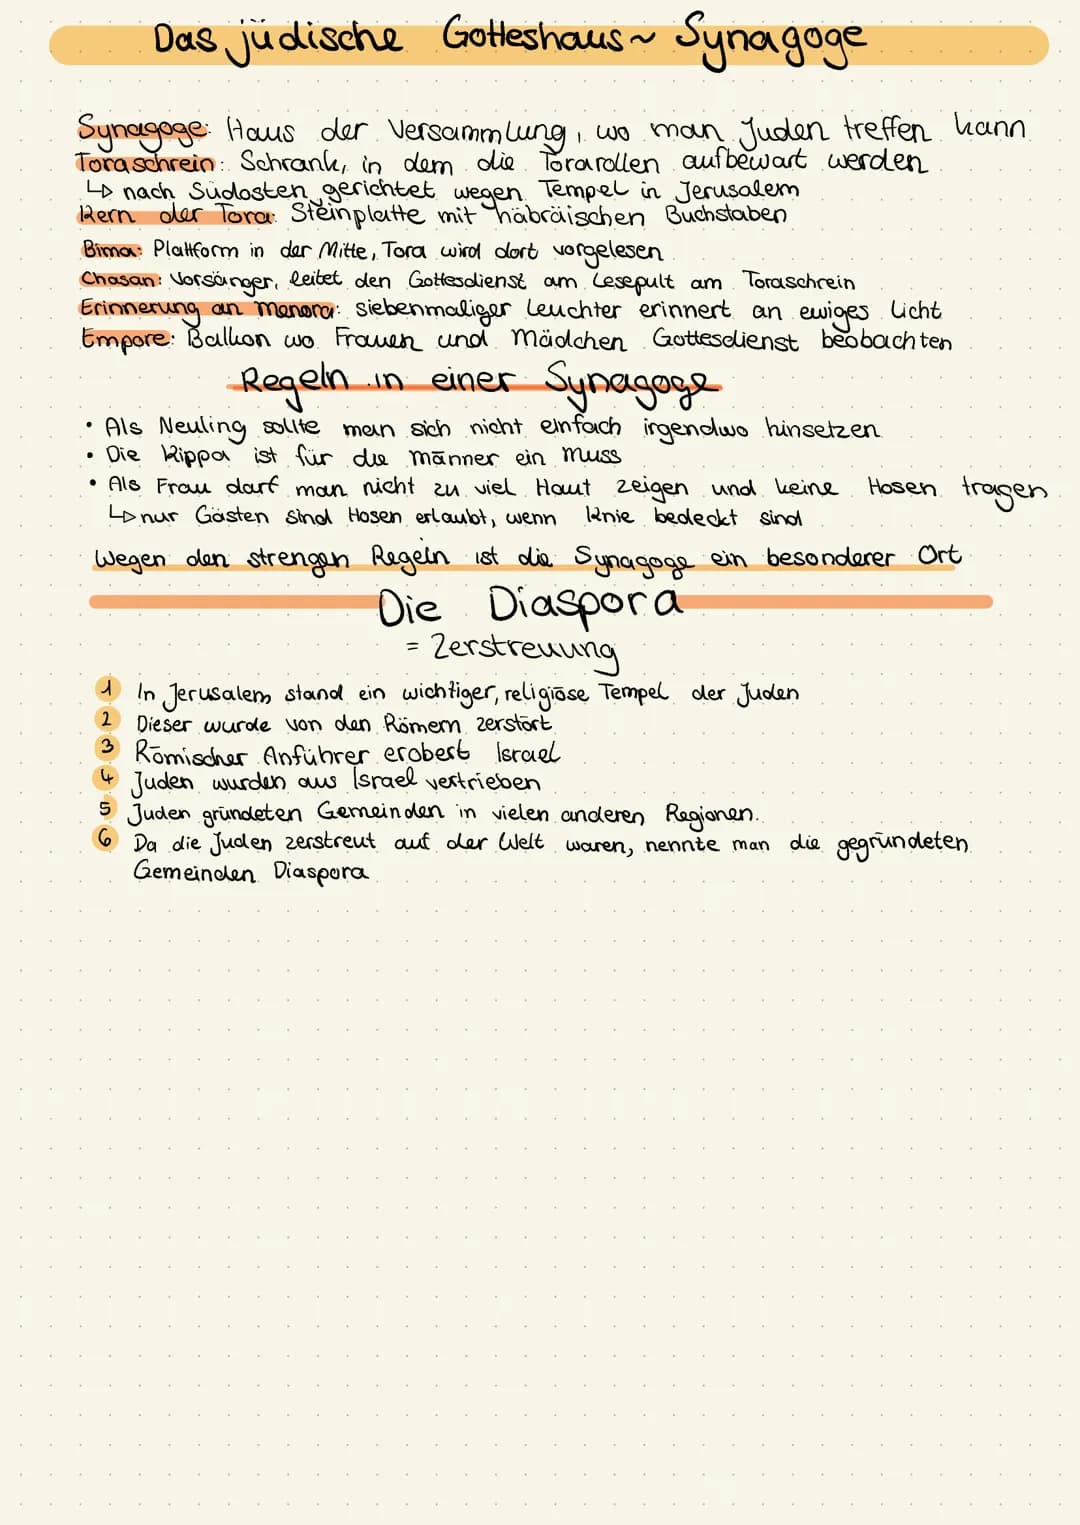 Das jüdische Gotteshaus ~ Synagoge
Synagoge: Haus der Versammlung, wo man Juden treffen kann
Toraschrein: Schrank, in dem die Torarollen aufbewart werden
↳ nach Südosten gerichtet wegen Tempel in Jerusalem
Kern der Tora: Steinplatte mit häbräischen Buchstaben
Bima: Plattform in der Mitte, Tora wird dort vorgelesen
Chasan: Vorsänger, leitet den Gottesdienst am Lesepult am Toraschrein
Erinnerung an Menora: siebenmaliger Leuchter erinnert an ewiges Licht
Empore: Balkon wo Frauen und Mädchen Gottesdienst beobachten
Regeln in einer Synagoge
• Als Neuling sollte man sich nicht einfach irgendwo hinsetzen
• Die Kippa ist für die Männer ein Muss
• Als Frau darf man nicht zu viel Haut zeigen und keine Hosen tragen
↳ nur Gästen sind Hosen erlaubt, wenn Knie bedeckt sind
Wegen den strengen Regeln ist die Synagoge ein besonderer Ort
Die Diaspora
= Zerstreuung
1 In Jerusalem stand ein wichtiger, religiöse Tempel der Juden
2 Dieser wurde von den Römern zerstört
3 Römischer Anführer erobert Israel
4 Juden wurden aus Israel vertrieben
5 Juden gründeten Gemeinden in vielen anderen Regionen.
6 Da die Juden zerstreut auf der Welt waren, nennte man die gegründeten
Gemeinden Diaspora